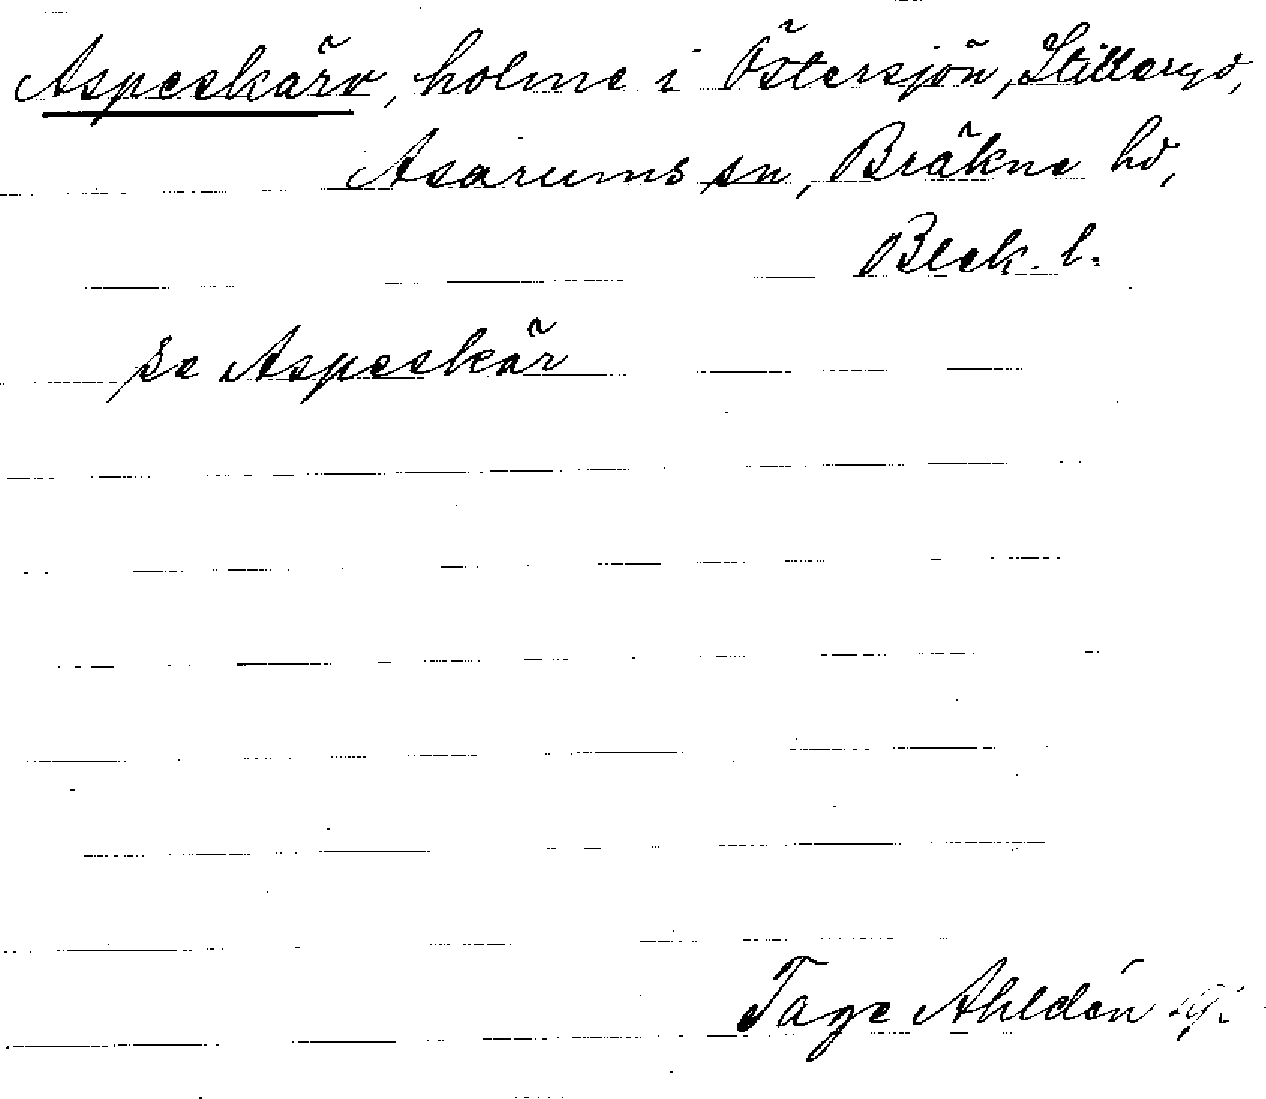 Aspeskärv, holme i Östersjön, Stilleryd,
Asarums sn, Bräkne hd,
Blek. l.
Se Aspeskär
Tage Ahldén